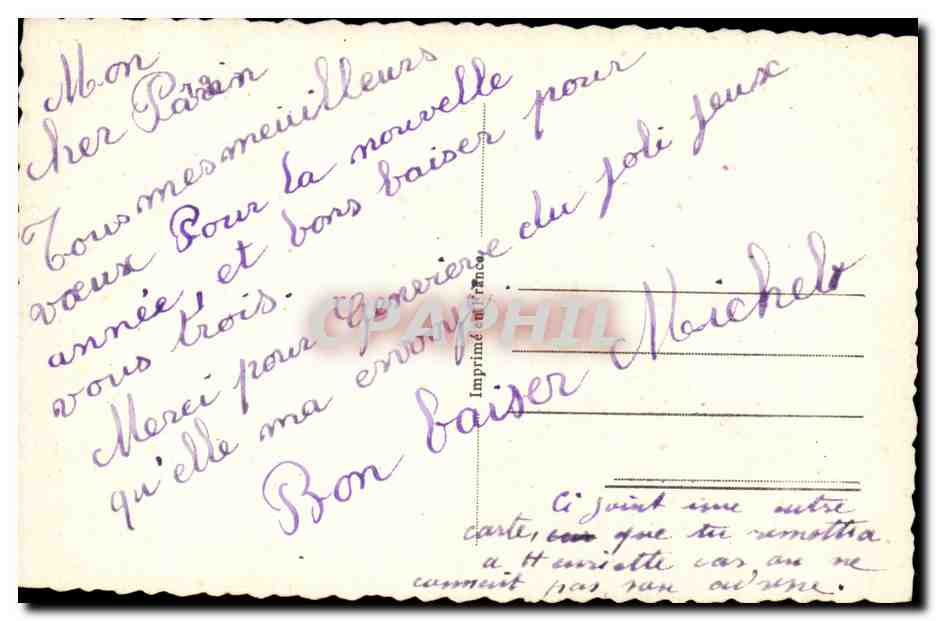 Mon
cher Parrain
Tous mes meuilleurs
vœux Pour la nouvelle
année, et bons baiser pour
vous trois.
Merci pour Genevieve du joli jeux
qu'elle ma envoyé.
Bon baiser Michel
Ci joint une autre
carte, que tu remettra
a Henriette car on ne
connait pas son adresse.
Imprimé en France
CPAPHIL